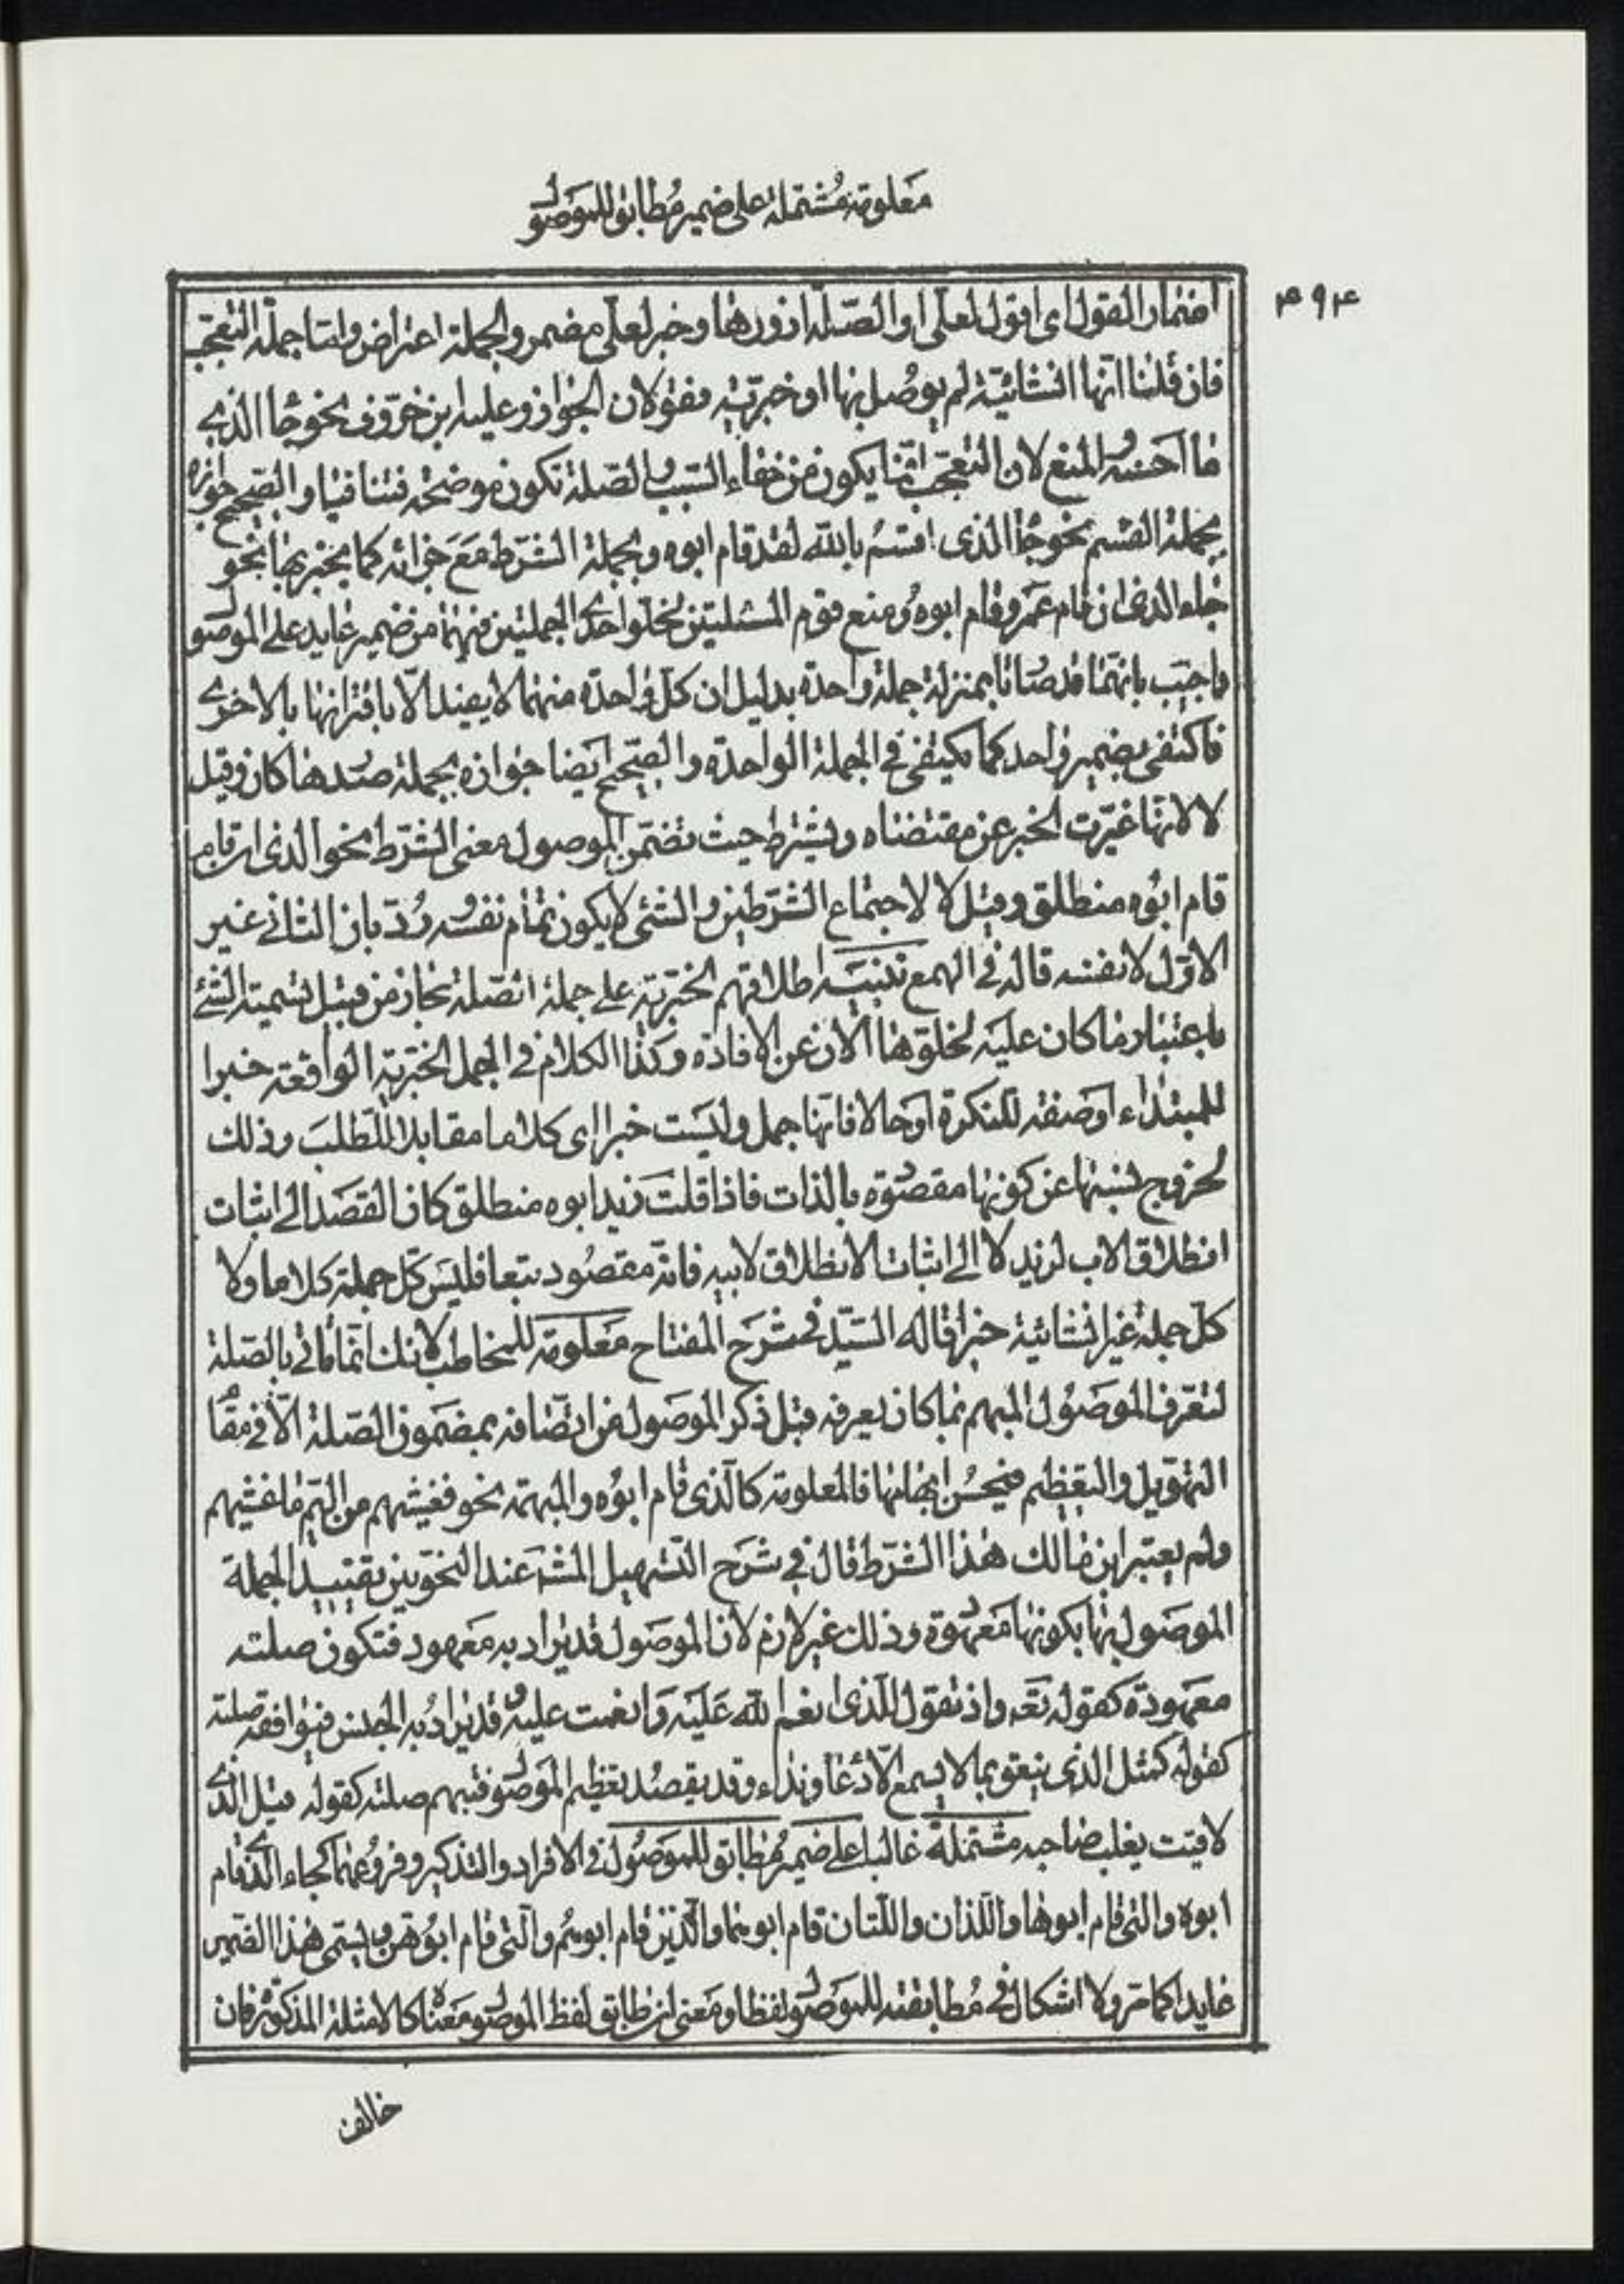 معلومة مشتملة على ضمير مُطابق للموصو
۴۹۴
اضمار القول اى اقول لعلى او الصّلة ازورها وخبر لعلّى مضمر والجملة اعتراض وامّا جملة التعجّب
فان قلنا انّها انشائيّة لم يوصُل بها او خبريّة فقولان الجواز وعليه ابن خرّوف نحو جاء الذى
ما احسنه والمنع لان التعجّب انّما يكون من خفاء السّبب والصّلة تكون موضحة فتنافيا والصّحيح جوازه
بجملة القسم نحو جاء الذى اقسمُ بالله لقد قام ابوه وبجملة الشّرط مَعَ جزائه كما يخبر بها نحو
جاء الذى ان قام عَمرو قام ابوه ومنع قوم المسئلتين لخلو احدى الجملتين فيهما من ضمير عايد على الموصو
واجيب بانّهما قد صارتا بمنزلة جملة واحدة بدليل ان كلّ واحدة منهما لا يفيد الّا باقترانها بالاخرى
فاكتفى بضمير واحد كما يكتفى فى الجملة الواحدة والصّحيح ايضا جوازه بجملة صدرها كان وقيل
لا لانّها غيّرت الخبر عن مقتضاه ويشترط حيث تضمّن الموصول معنى الشّرط نحو الذى ان قام
قام ابوُه منطلق وقيل لا لاجتماع الشّرطين والشئ لا يكون تمام نفسه ورُدّ بان الثانى غير
الاوّل لا نفسه قاله فى الهمع تنبيَه اطلاقهم الخبريّة على جملة الصّلة مجاز من قبيل تسمية الشئ
باعتبار ما كان عليَه لخلوّها الآن عن الافادة وكذا الكلام فى الجمل الخبريّة الواقعة خبرا
للمبتداء اوصفة للنكرة اوحالا فانّها جمل وليسَت خبرا اى كلاما مقابلا للطلبَ وذلك
لخروج نسبتها عن كونها مقصوده بالذات فاذا قلت زيد ابوه منطلق كان القصَد الى اثبات
انطلاق الاب لزيد لا الى اثبات الانطلاق لابيه فانّه مقصُود تبعا فليسَ كلّ جملة كلاما ولا
كلّ جملة غير انشائية خبرا قاله السّيّد فى شرَح المفتاح مَعلومة للمخاطب لانك انّما تاتى بالصّلة
لتعّرف الموصَوُل المبهم بما كان يعرفه قبل ذكر الموصول من اتّصافه بمضمَون الصّلة الّا فى مقام
التهويل والتعظيم فيحسُن ابهامها فالمعلومة كالّذى قام ابوُه والمبهمة نحو فغشيهم من اليّم ما غشيهم
ولم يعتبر ابن مالك هذا الشّرط قال فى شرَح التسّهيل المشهَ عند النحوّيين تقييد الجملة
الموصَول بها بكونها مَعهودة وذلك غير لازم لان الموصَول قد يراد به مَعهود فتكون صلته
معَهودة كقوله تعَ واذ تقول للّذى انعم الله عَليَه وَانعمت عليه وقد يرادُ به الجنس فيوافقه صلته
كقوله كمثل الذى ينعق بما لا يسمع الّا دعا ونداء وقد يقصُد تعظيم الموصو فتبهم صلته كقوله مثل الذى
لاقيت يغلب صاحبه مشتملة غالبا على ضمير مُطابق للموصَول فى الافراد والتذكير وفروعُهما كجاء الّذى قام
ابوه والتى قام ابوها واللذان واللّتان قام ابوهما والّذين قام ابوهُم والّتى قام ابوُهن ويسَمى هَذا الضمير
عايدا كما مّر ولا اشكال فى مُطابقته للموصو لفظا ومَعنى ان طابق لفظ الموصو مَعناه كالامثلة المذكورة فان
خالف